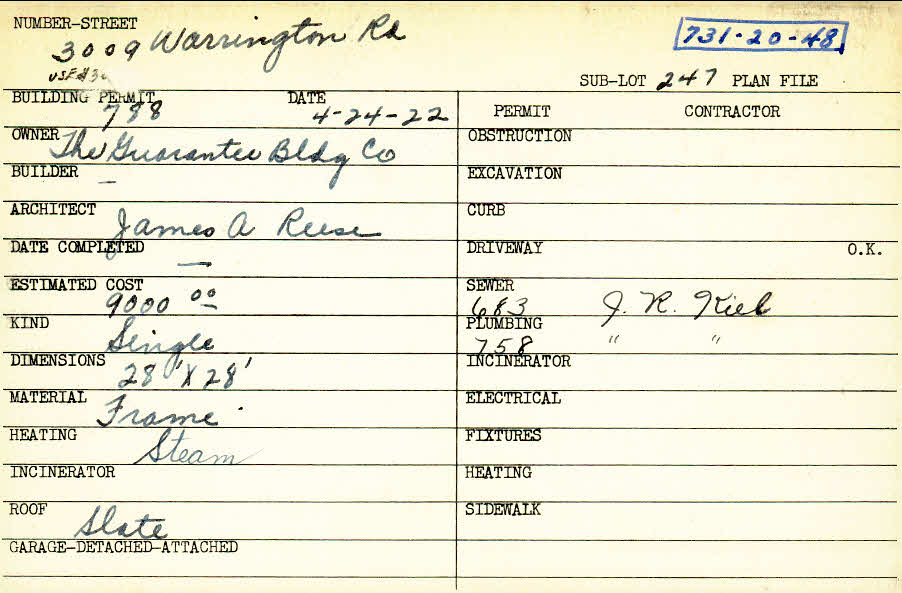 NUMBER-STREET
3009 Warrington Rd
731-20-48
SUB-LOT 247 PLAN FILE
BUILDING PERMIT DATE
788 4-24-22
PERMIT CONTRACTOR
OWNER The Guarantee Bldg Co
OBSTRUCTION
BUILDER —
EXCAVATION
ARCHITECT James A Reese
CURB
DATE COMPLETED —
DRIVEWAY O.K.
ESTIMATED COST 9000 00
SEWER
683 J. R. Kieb
KIND Single
PLUMBING
758 " "
DIMENSIONS 28' X 28'
INCINERATOR
MATERIAL Frame
ELECTRICAL
HEATING Steam
FIXTURES
INCINERATOR
HEATING
ROOF Slate
SIDEWALK
GARAGE-DETACHED-ATTACHED